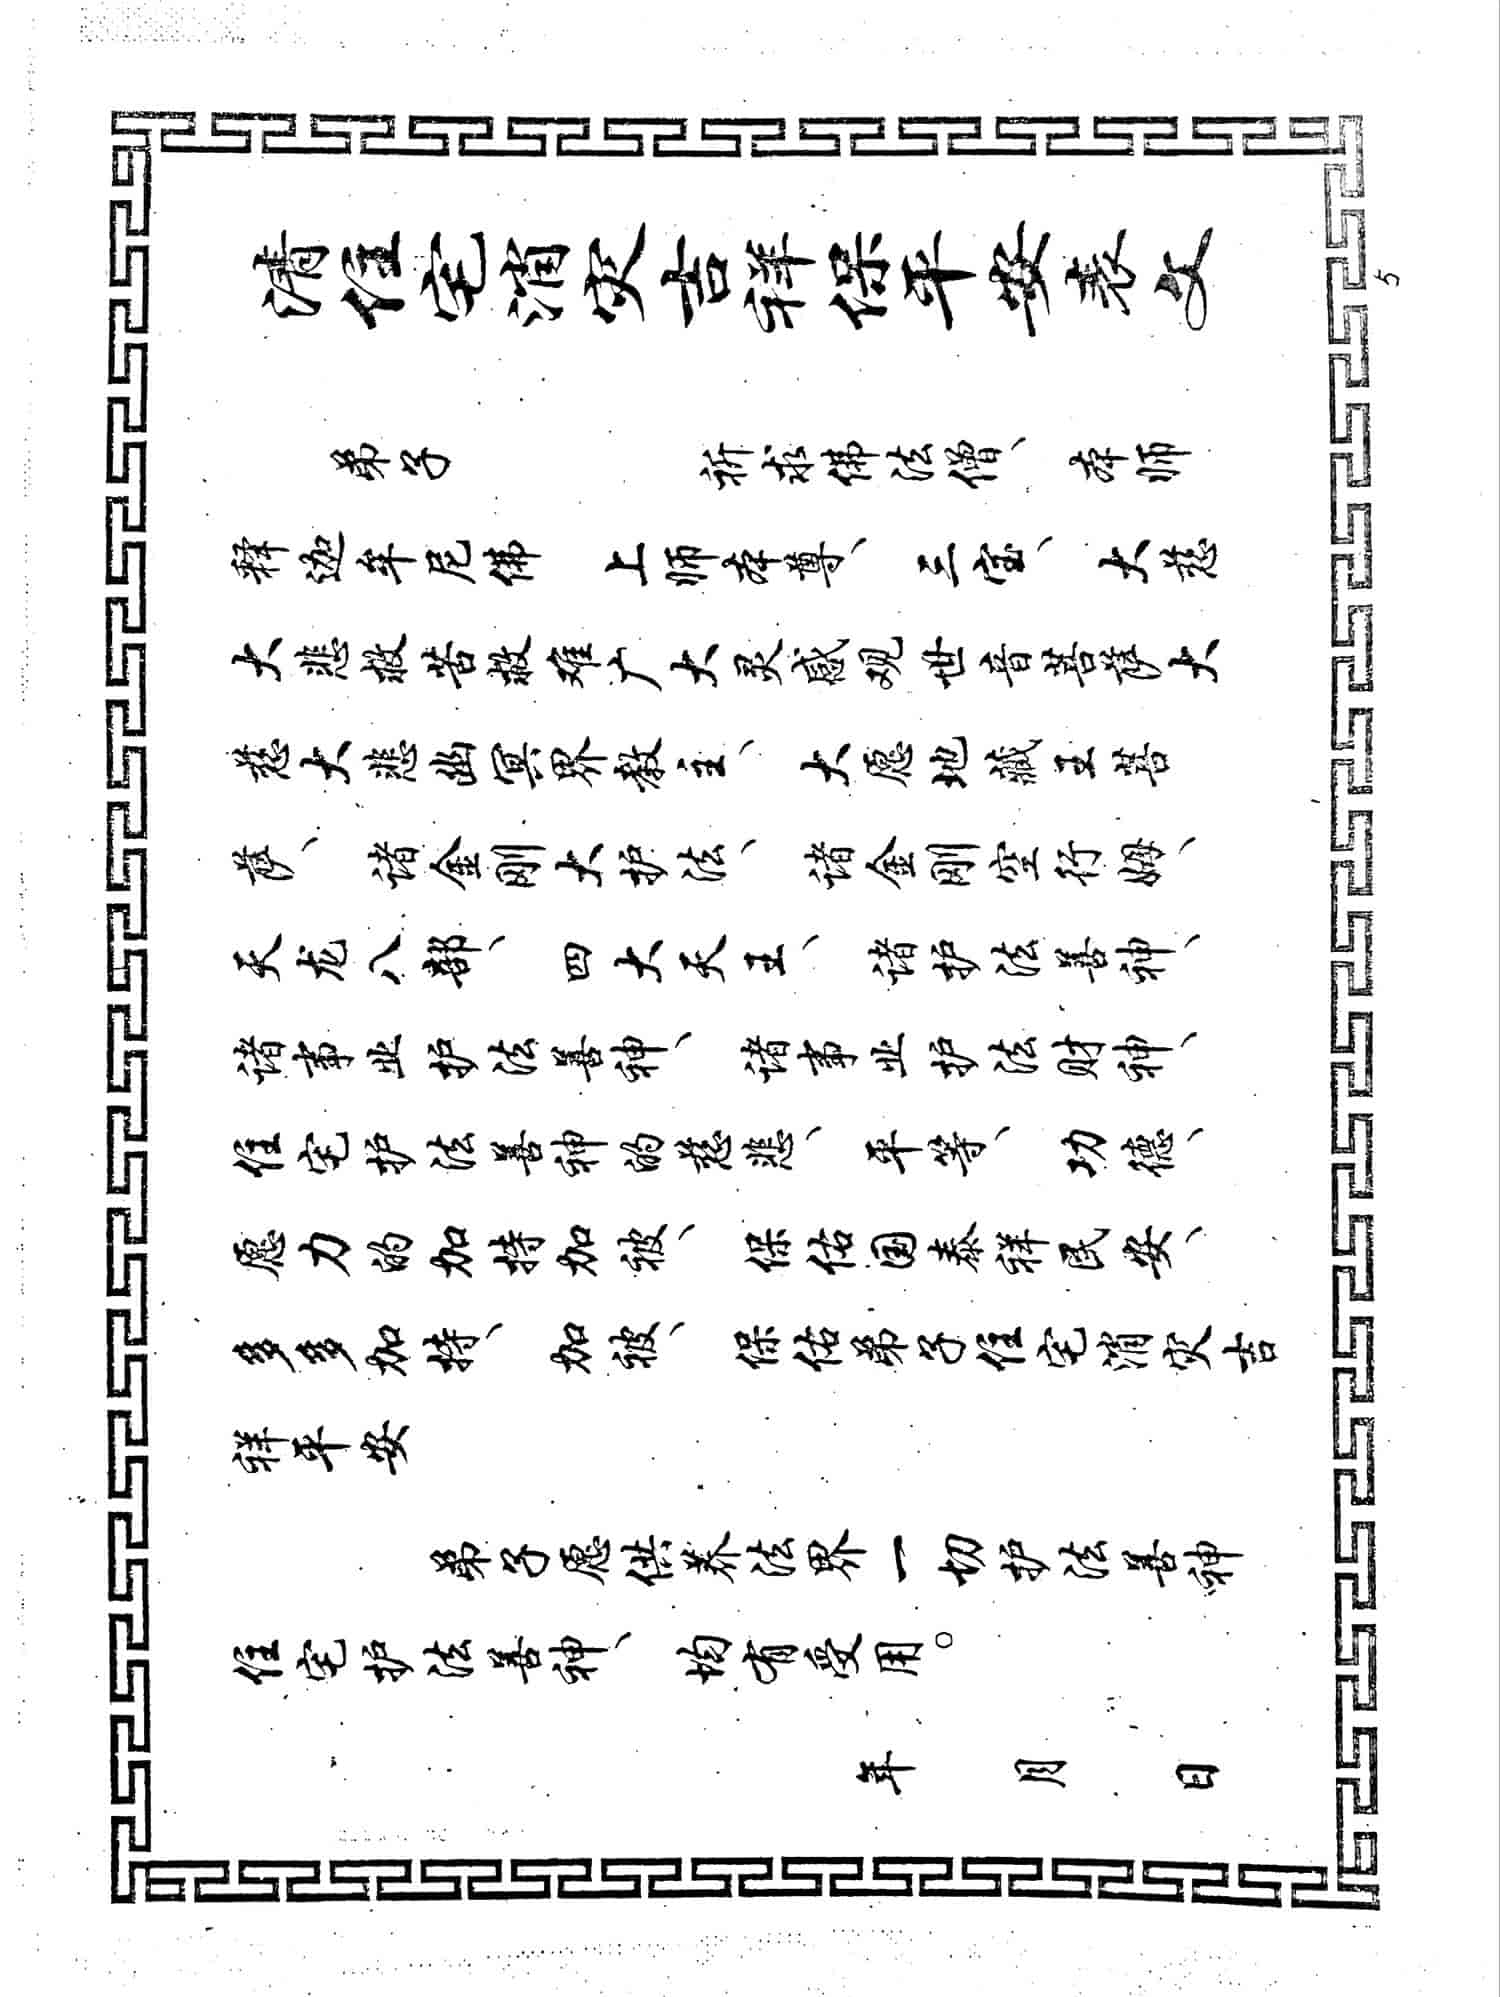 请住宅消灾吉祥保平安表文
5
弟子 祈求佛法僧、本师
释迦牟尼佛 上师本尊、三宝、大慈
大悲救苦救难广大灵感观世音菩萨大
慈大悲幽冥界教主、大愿地藏王菩
萨、诸金刚大护法、诸金刚空行姆、
天龙八部、四大天王、诸护法善神、
诸事业护法善神、诸事业护法财神、
住宅护法善神的慈悲、平等、功德、
愿力的加持加被、保佑国泰祥民安、
多多加持、加被、保佑弟子住宅消灾吉
祥平安
弟子愿供养法界一切护法善神
住宅护法善神、均有受用。
年 月 日